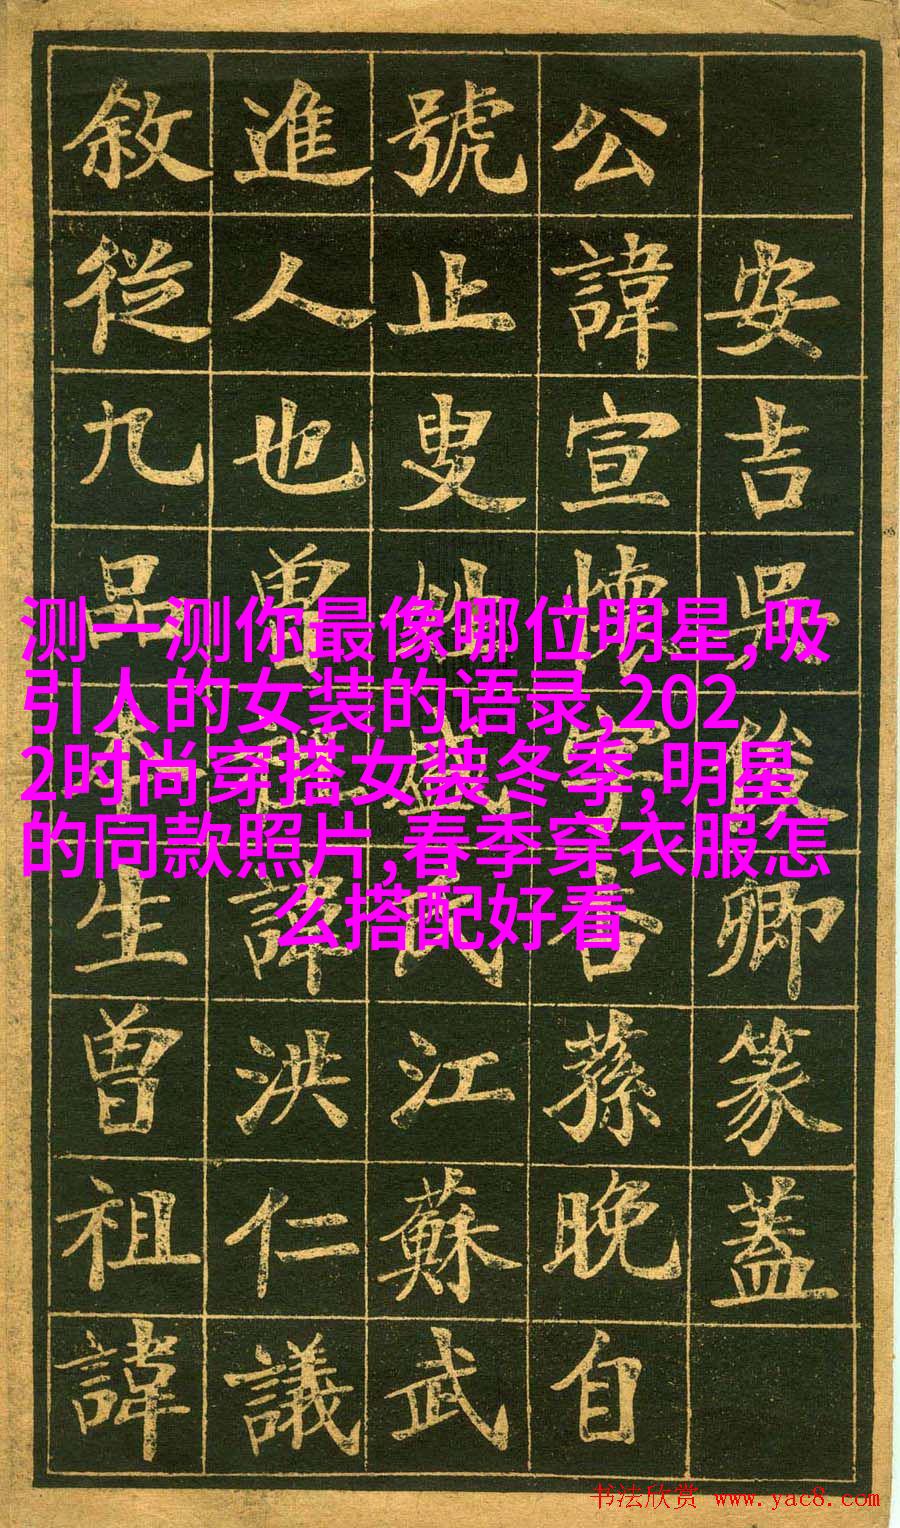 安吉吳俊卿篆蓋
公諱宣懷字杏蓀晚自
號止叟姓盛氏江蘇武
進人也曾祖諱洪仁議
敘從九品本生曾祖諱
测一测你最像哪位明星,吸
引人的女装的语录,202
2时尚穿搭女装冬季,明星
的同款照片,春季穿衣服怎
么搭配好看
书法欣赏 www.yac8.com